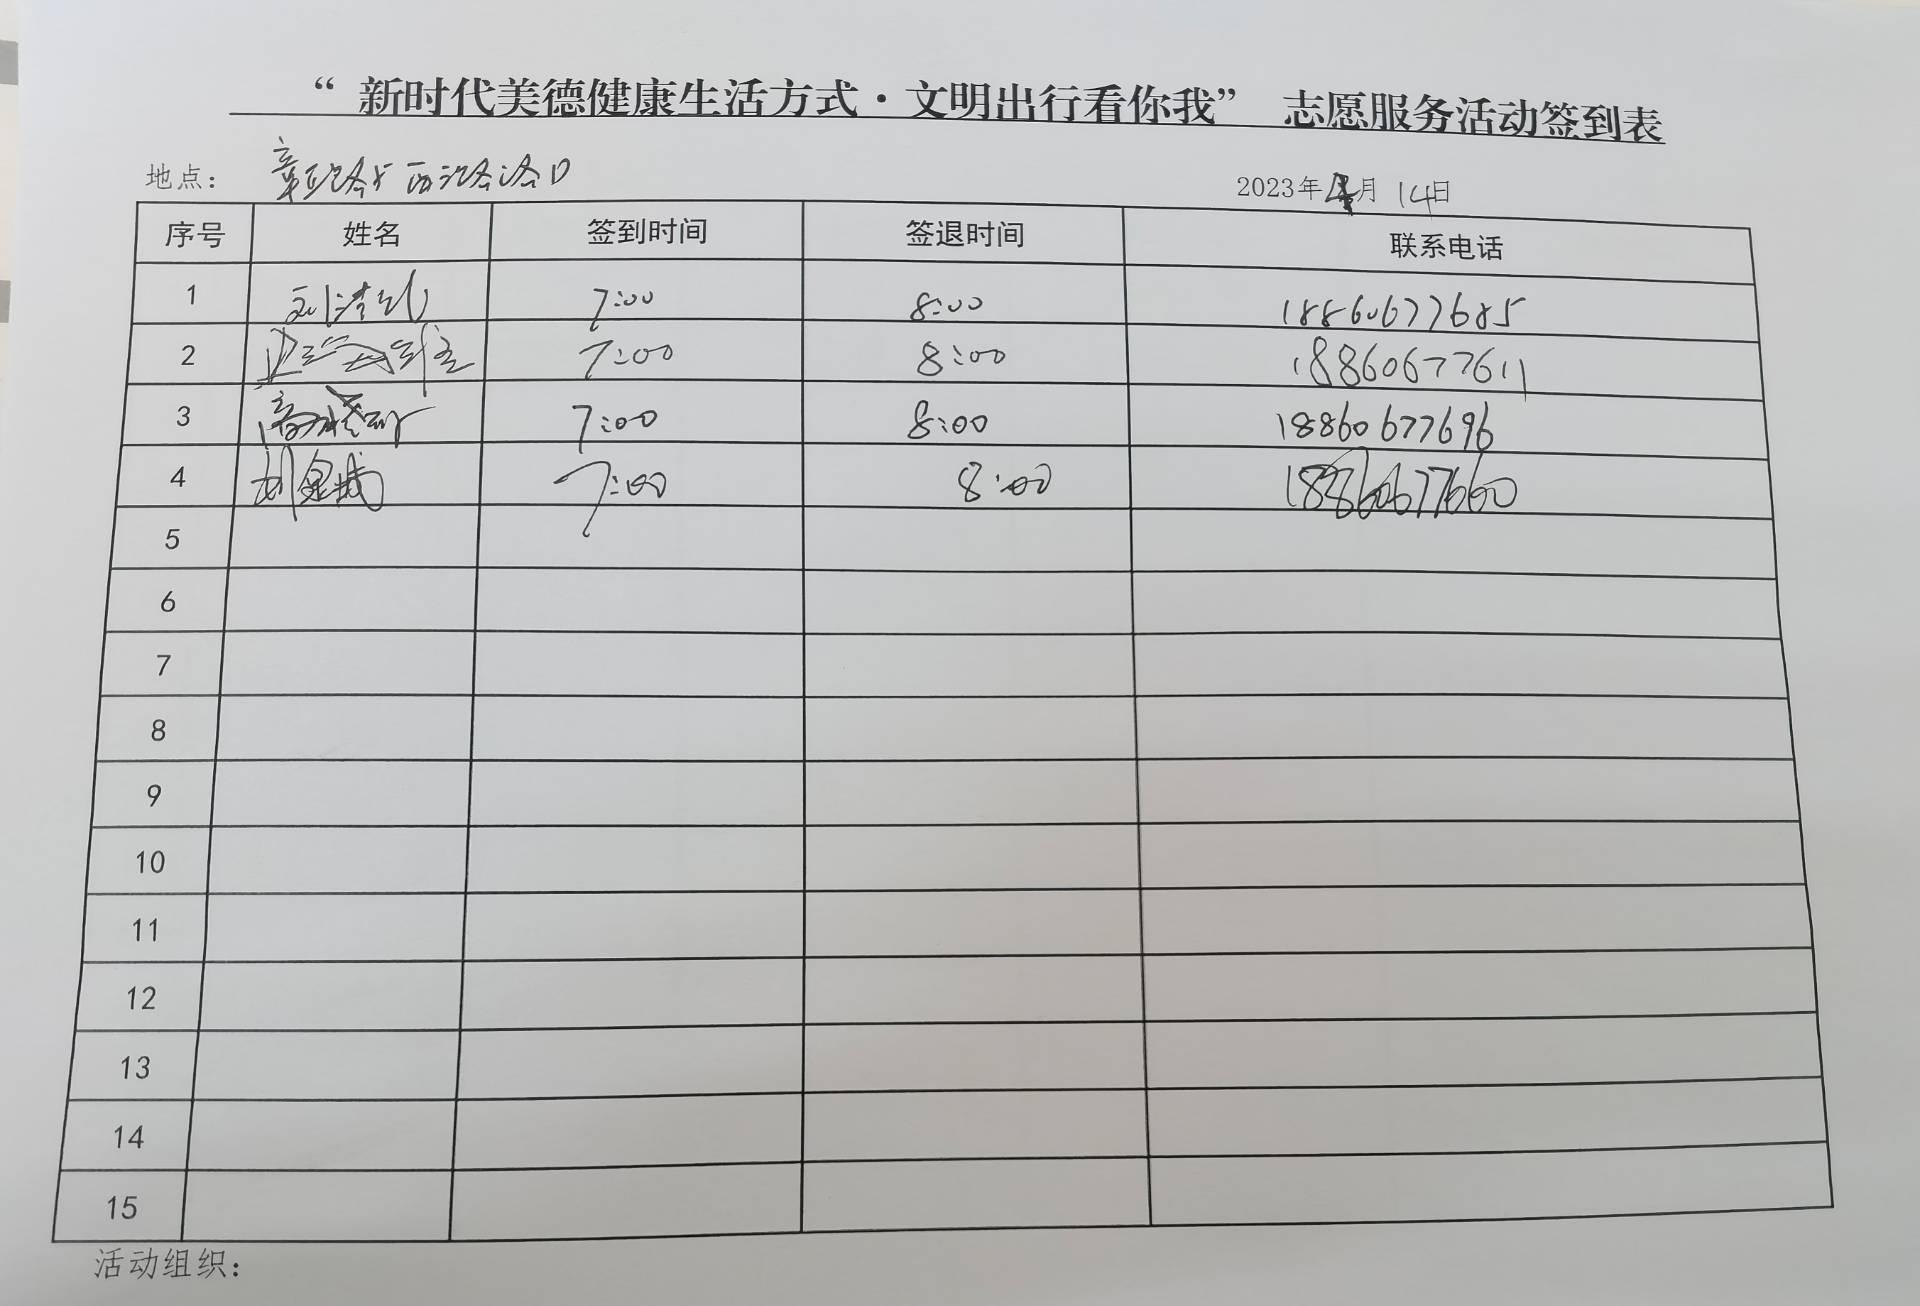 “ 新时代美德健康生活方式·文明出行看你我” 志愿服务活动签到表
地点： 2023年4月 14日
序号 姓名 签到时间 签退时间 联系电话
1 7:00 8:00 18860677685
2 7:00 8:00 18860677611
3 7:00 8:00 18860677696
4 7:00 8:00 18860677660
5
6
7
8
9
10
11
12
13
14
15
活动组织：